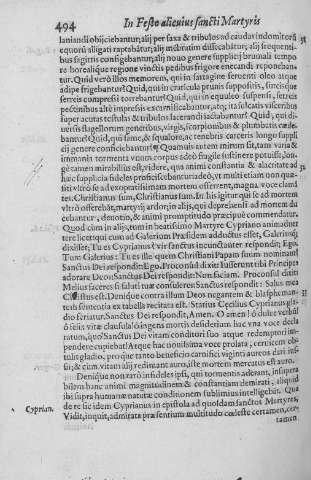 494 In Festo alicuius sancti Martyris
laniandi obijciebantur, alij per saxa & tribulos ad caudas indomitorũ
equorũ alligati raptabãtur, alij mẽbratim dissecabãtur, alij frequenti-
bus sagittis configebantur, alij nouo genere supplicij brumali tempo
re borealique regione vinctis pedibus frigore enecandi reponeban
tur. Quid verò illos memorem, qui in sartagine feruenti oleo atque
adipe frigebantur? Quid, qui in craticula prunis suppositis, furcisque
ferreis compressi torrebantur? Quid, qui in equuleo suspensi, ferreis
pectinibus altè impressis excarnificabantur, atq; ita sulcatis visceribus
super acutas testulas & tribulos lacerandi iactabantur? Quid, qui di-
uersis flagellorum generibus, virgis, scorpionibus & plumbatis cæde-
bantur? Qui, qui fame, & squalore, ac tenebris carceris longo suppli
cij genere conficiebantur? Quamuis autem mirum sit, tam varia &
immania tormenta vnum corpus adeò fragile sustinere potuisse, lon-
gè tamen mirabilius est, videre, qua animi constantia & alacritate ad
hæc supplicia fideles proficiscebantur adeò, vt multi etiam non quæ-
siti vltrò se ad exoptatissimam mortem offerrent, magna voce clamã
tes. Christianus sum, Christianus sum. In his igitur qui se ad mortem
vltrò offerebãt, martyrij ardor, in alijs, qui deprehensi ad mortem du
cebantur, deuotio, & animi promptitudo præcipuè commendatur.
Quod cùm in alijs, tum in beatissimo Martyre Cypriano animaduer
tere licet; qui cum ad Galerium Præsidem adductus esset, Galerius ei
dixisset, Tu es Cyprianus? vir sanctus incunctanter respondit, Ego.
Tum Galerius: Tu es ille quem Christiani Papam suum nominant?
Sanctus Dei respondit: Ego. Proconsul dixit: Iusserunt tibi Principes
adorare Deos: Sanctus Dei respondit: Non faciam. Proconsul dixit:
Melius faceres si saluti tuæ consuleres: Sanctus respondit: Salus mea
Christus est. Denique contra illum Deos negantem & blasphemantem
sententia ex tabella recitata est. Statius Cecilius Cyprianus gla-
dio feriatur. Sanctus Dei respondit, Amen. O amen! ô dulce verbũ!
ô felix vitæ clausula! ô ingens mortis desiderium hac vna voce decla
ratum, quo Sanctus Dei vitam conditori suo atque redemptori im-
pendere cupiebat! Atque hac nouissima voce prolata, ceruicem ob-
tulit gladio, proque tanto beneficio carnifici viginti aureos dari ius-
sit; & cùm vitam alij redimant auro, iste mortem mercatus est auro.
Denique non rarò infideles ipsi, qui tormentis aderant, insupera
bilem hanc animi magnitudinem & constantiam demirati, aliquid
ibi supra humanæ naturæ conditionem sublimius intelligebãt. Qua
Cyprian. de re sic idem Cyprianus in epistola ad quosdam sanctos Martyres,
Vidit, inquit, admirata præsentium multitudo cæleste certamen, cer-
tamen